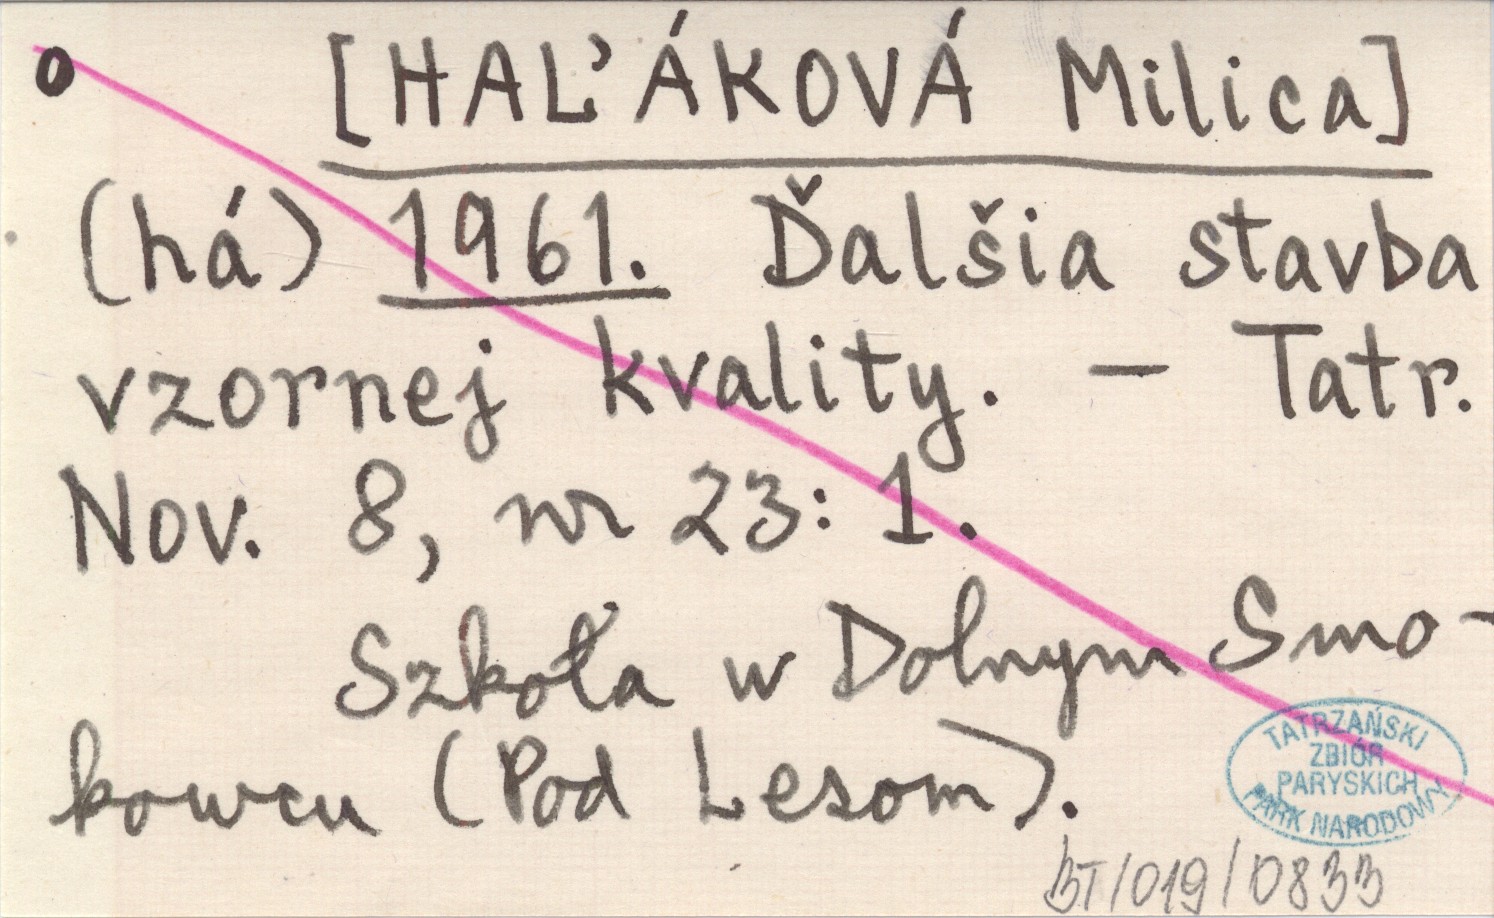 o [HAĽÁKOVÁ Milica]
(há) 1961. Ďalšia stavba
vzornej kvality. – Tatr.
Nov. 8, nr 23: 1.
Szkoła w Dolnym Smo-
kowcu (Pod Lesom).
TATRZAŃSKI
ZBIÓR
PARYSKICH
PARK NARODOWY
BT/019/0833